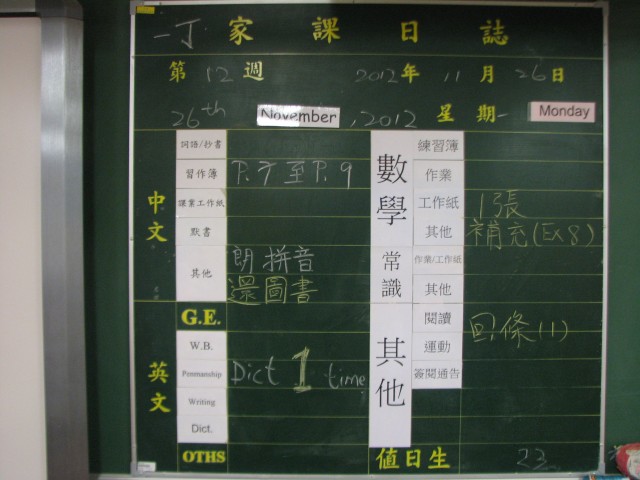 一丁 家課日誌
第 12 週 2012年 11月 26日
26th November, 2012 星期一 Monday
中文
詞語/抄書
習作簿 P.7至P.9
課業工作紙
默書
其他 朗拼音
還圖書
英文
G.E.
W.B.
Penmanship Dict 1 time
Writing
Dict.
OTHS
數學
練習簿
作業
工作紙 1張
其他 補充(Ex8)
常識
作業/工作紙
其他
其他
閱讀 回條(1)
運動
簽閱通告
值日生 23